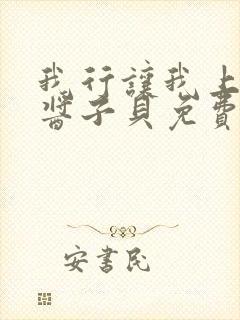 我行讓我上
醬子貝免費
安書民